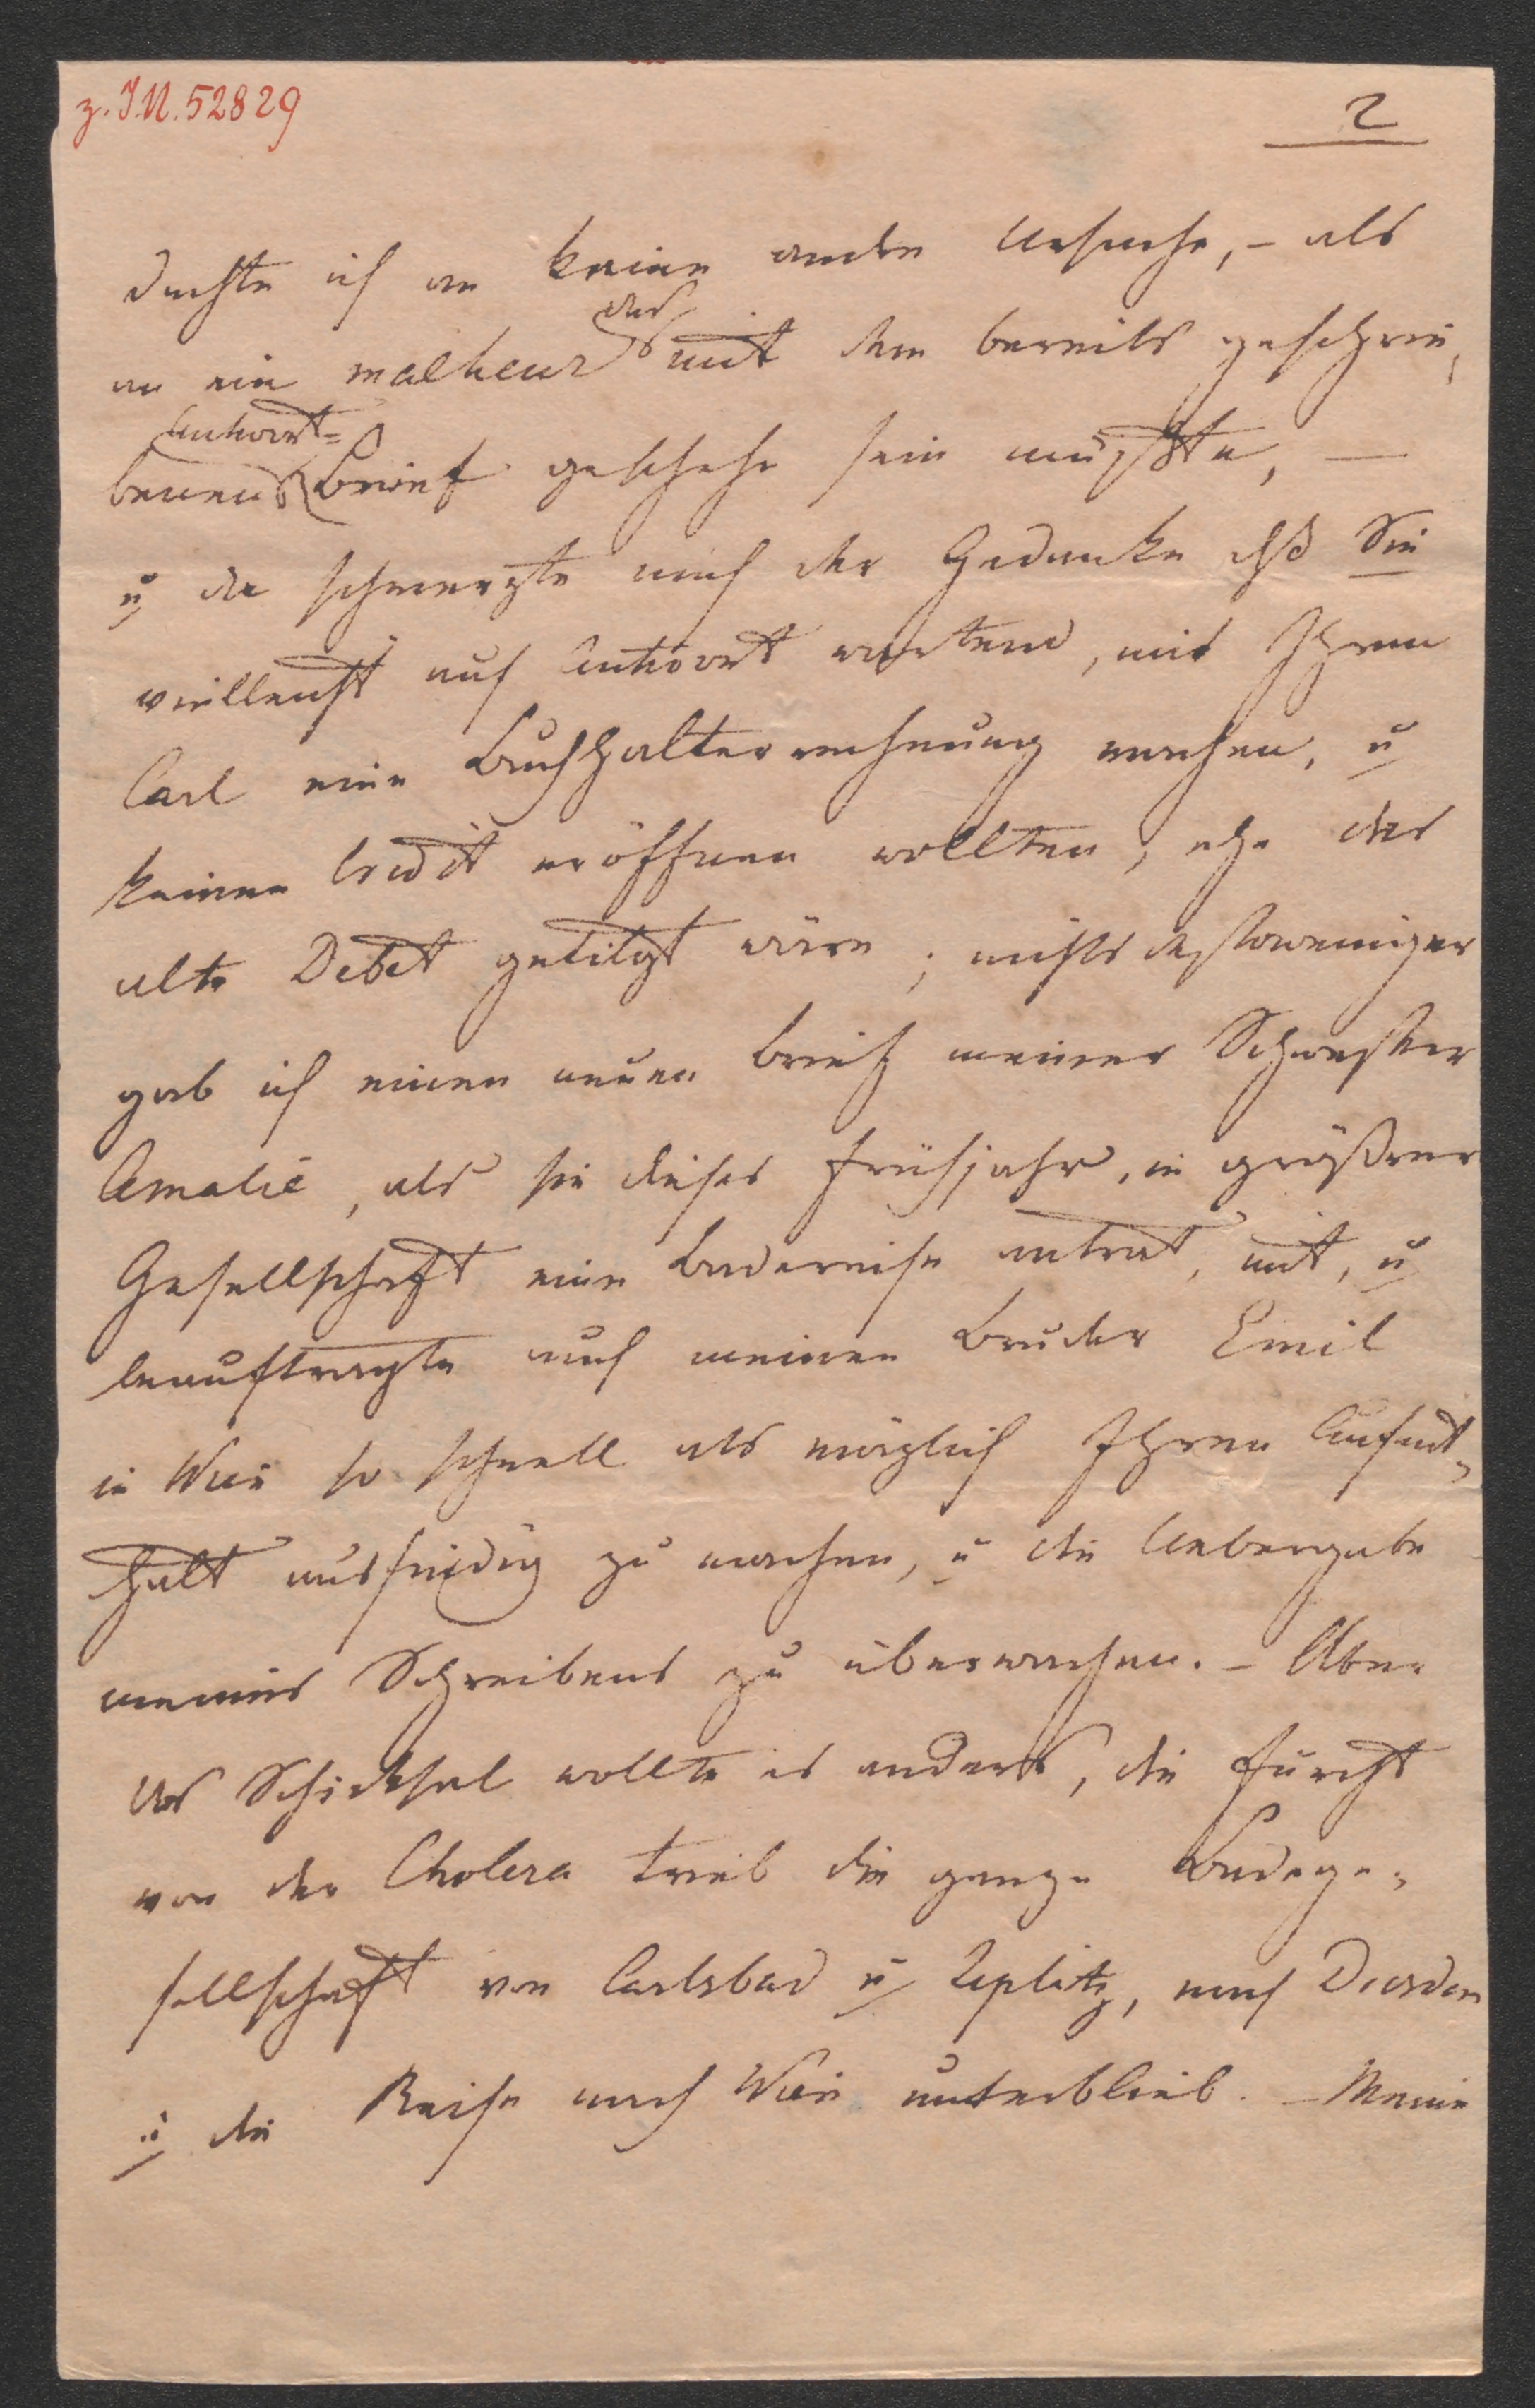 z. I.N. 52829
2
dachte ich an keine andre Ursache, – als
an ein malheur das mit dem bereits geschrie,
benen Antwort= Brief geschehn sein müßte, —
u da schmerzte mich der Gedanke dß Sie
vielleicht auf Antwort wartend, mit Ihrem
Carl eine Buchhalterrechnung machen, u
keinen Credit eröffnen wollten, ehe das
alte Debet getilgt wäre; nichts destoweniger
gab ich einen neuen Brief meiner Schwester
Amalie, als sie dieses Frühjahr, in größrer
Gesellschaft eine Badereise antrat, mit, u
beauftragte auch meinen Bruder Emil
in Wien so schnell als möglich Ihren Aufent,
halt ausfindig zu machen, u die Uebergabe
meines Schreibens zu überwachen. – Aber
das Schicksal wollte es anders, die Furcht
vor der Cholera trieb die ganze Badege,
sellschaft von Carlsbad u Teplitz, nach Dresden
u die Reise nach Wien unterblieb. – Meine